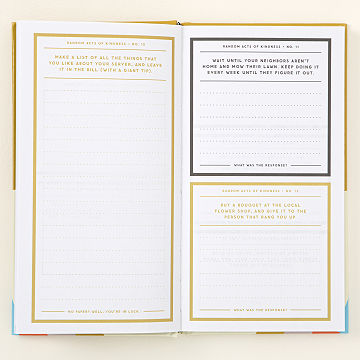 RANDOM ACTS OF KINDNESS • NO. 10
MAKE A LIST OF ALL THE THINGS THAT
YOU LIKE ABOUT YOUR SERVER, AND LEAVE
IT IN THE BILL (WITH A GIANT TIP).
NO PAPER? WELL, YOU'RE IN LUCK.
RANDOM ACTS OF KINDNESS • NO. 11
WAIT UNTIL YOUR NEIGHBORS AREN'T
HOME AND MOW THEIR LAWN. KEEP DOING IT
EVERY WEEK UNTIL THEY FIGURE IT OUT.
WHAT WAS THE RESPONSE?
RANDOM ACTS OF KINDNESS • NO. 12
BUY A BOUQUET AT THE LOCAL
FLOWER SHOP, AND GIVE IT TO THE
PERSON THAT RANG YOU UP.
WHAT WAS THE RESPONSE?